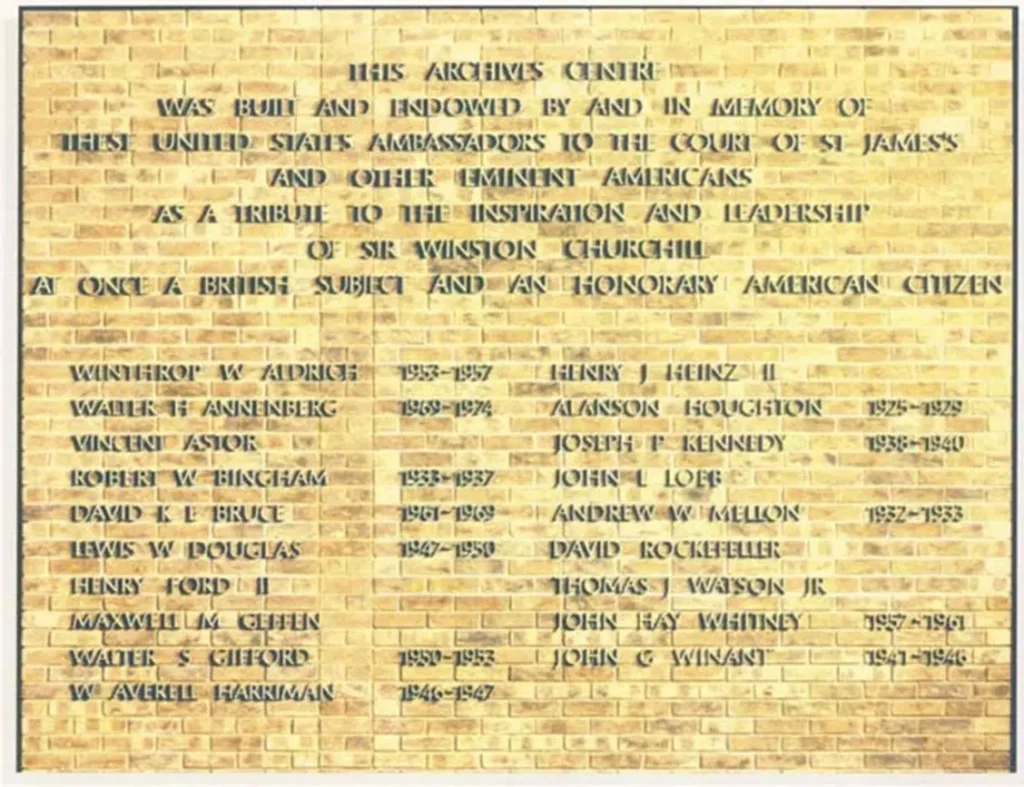 THIS ARCHIVES CENTRE
WAS BUILT AND ENDOWED BY AND IN MEMORY OF
THESE UNITED STATES AMBASSADORS TO THE COURT OF ST JAMES'S
AND OTHER EMINENT AMERICANS
AS A TRIBUTE TO THE INSPIRATION AND LEADERSHIP
OF SIR WINSTON CHURCHILL
AT ONCE A BRITISH SUBJECT AND AN HONORARY AMERICAN CITIZEN
WINTHROP W ALDRICH 1953-1957 HENRY J HEINZ II
WALTER H ANNENBERG 1969-1974 ALANSON HOUGHTON 1925-1929
VINCENT ASTOR JOSEPH P KENNEDY 1938-1940
ROBERT W BINGHAM 1933-1937 JOHN L LOEB
DAVID K E BRUCE 1961-1969 ANDREW W MELLON 1932-1933
LEWIS W DOUGLAS 1947-1950 DAVID ROCKEFELLER
HENRY FORD II THOMAS J WATSON JR
MAXWELL M GEFFEN JOHN HAY WHITNEY 1957-1961
WALTER S GIFFORD 1950-1953 JOHN G WINANT 1941-1946
W AVERELL HARRIMAN 1946-1947